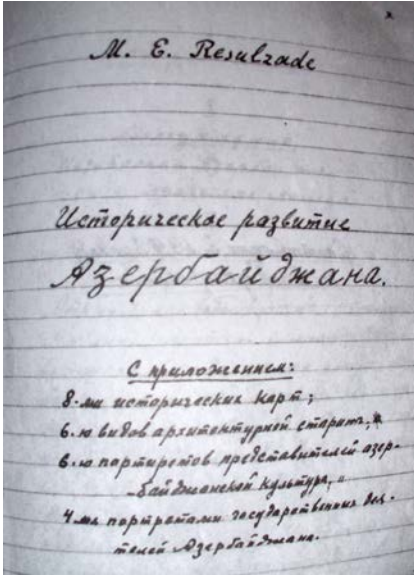 M. E. Resulzade
Историческое развитие
Азербайджана.
С приложением:
8-ми исторических карт;
6-ю видов архитектурной
6-ю портретов представителей азер-
-байджанской культуры,
4-мя портретами государственных дея-
телей Азербайджана.